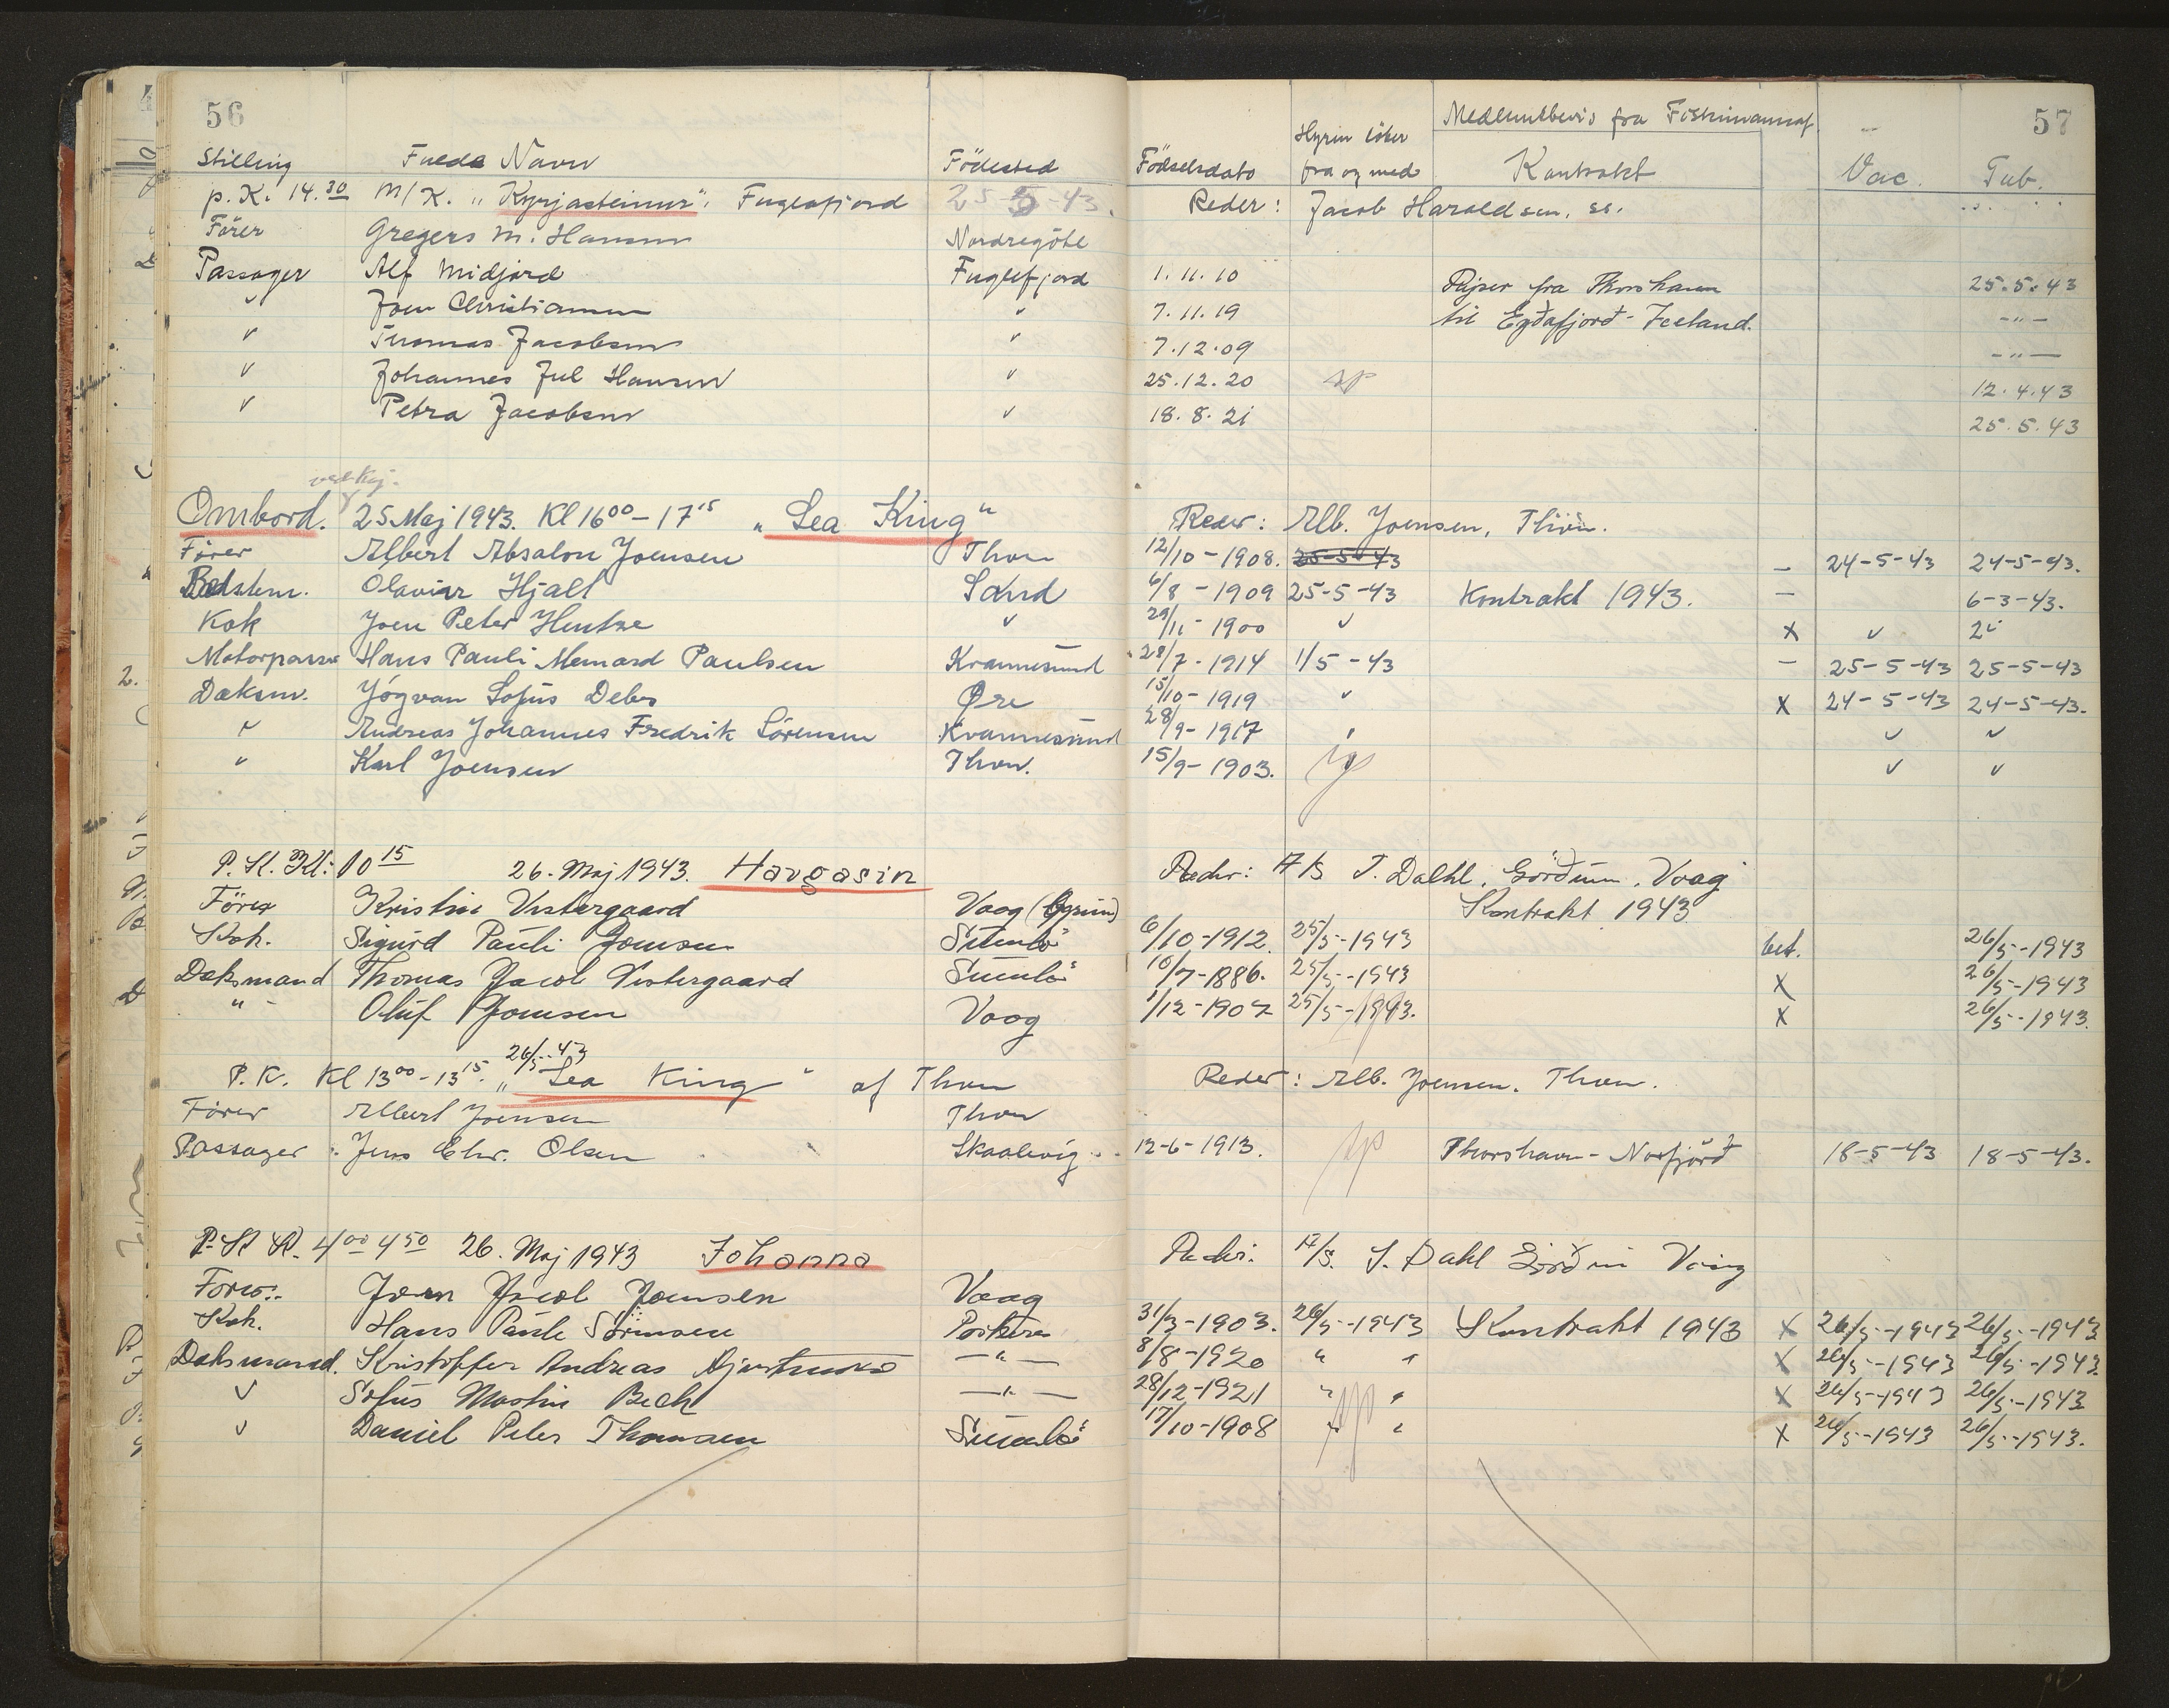 56
57
Medlemsbevis fra Fiskimannaf.
Stilling Fulde Navn Födested Födselsdato Hyren löber fra og med Kontrakt Vac. Tub.
p. K. 14.30 M/K. "Kyrjasteinur", Fuglafjord 25-5-43. Reder: Jacob Haraldsen, ss.
Förer Gregers M. Hansen Nordregöte
Passager Alf Midjord Fuglefjord 1.11.10 Rejser fra Thorshavn 25.5.43
" Joen Christiansen " 7.11.19 til Eyðafjord-Iceland. -"-
" Thomas Jacobsen " 7.12.09 -"-
" Johannes Jul Hansen " 25.12.20 12.4.43
" Petra Jacobsen " 18.8.21 25.5.43
ved Kaj.
Ombord. 25 Maj 1943. Kl 16 00 - 17 15 "Sea King" Reder: Alb. Joensen, Thvn.
Förer Albert Absalon Joensen Thvn 12/10-1908. 25-5-43 - 24-5-43 24-5-43.
Bedstem. Olaviur Hjalt Sand 6/8-1909 25-5-43 Kontrakt 1943. - 6-3-43.
Kok Joen Peter Hentze " 29/11-1900 " x "
Motorpasser Hans Pauli Menard Paulsen Kvannesund 28/7-1914 1/5-43 - 25-5-43 25-5-43
Dæksm. Jógvan Sofus Debes Øre 15/10-1919 " x 24-5-43 24-5-43.
" Andreas Johannes Fredrik Sörensen Kvannesund 28/9-1917 " " "
" Karl Joensen Thvn. 15/9-1903. " " "
P. K. Kl: 10 15 26. Maj 1943. Havgasin Reder: A/S J. Dahl, Görðum, Vaag
Förer Kristin Vestergaard Vaag Kontrakt 1943
Kok. Sigurd Pauli Joensen Sumbö 6/10-1912. 25/5-1943 bet. 26/5-1943
Dæksmand Thomas Jacob Vestergaard Sumbö 10/7-1886. 25/5-1943 x 26/5-1943
" Oluf Joensen Vaag 1/12-1907 25/5-1943. x 26/5-1943.
P. K. Kl 13 00 - 13 15. 26/5-43 "Sea King" af Thvn Reder: Alb. Joensen. Thvn.
Förer Albert Joensen Thvn
Passager Jens Chr. Olsen Skaalevig 12-6-1913. Thorshavn - Norfjörð 18-5-43 18-5-43.
P. K. Kl. 4 00 4 50 26. Maj 1943 Johanna Reder: A/S. J. Dahl Görðum Vaag
Förer: Joen Jacob Joensen Vaag
Kok. Hans Pauli Sörensen Porkere 31/3-1903. 26/5-1943 Kontrakt 1943 x 26/5-1943 26/5-1943
Dæksmand. Kristoffer Andreas -"- 8/8-1920 " " x 26/5-1943 26/5-1943.
" Sofus Martin Bech -"- 28/12-1921 " " x 26/5-1943 26/5-1943
" Daniel Peter Thomsen Sumbö 17/10-1908 " " x 26/5-1943 26/5-1943.